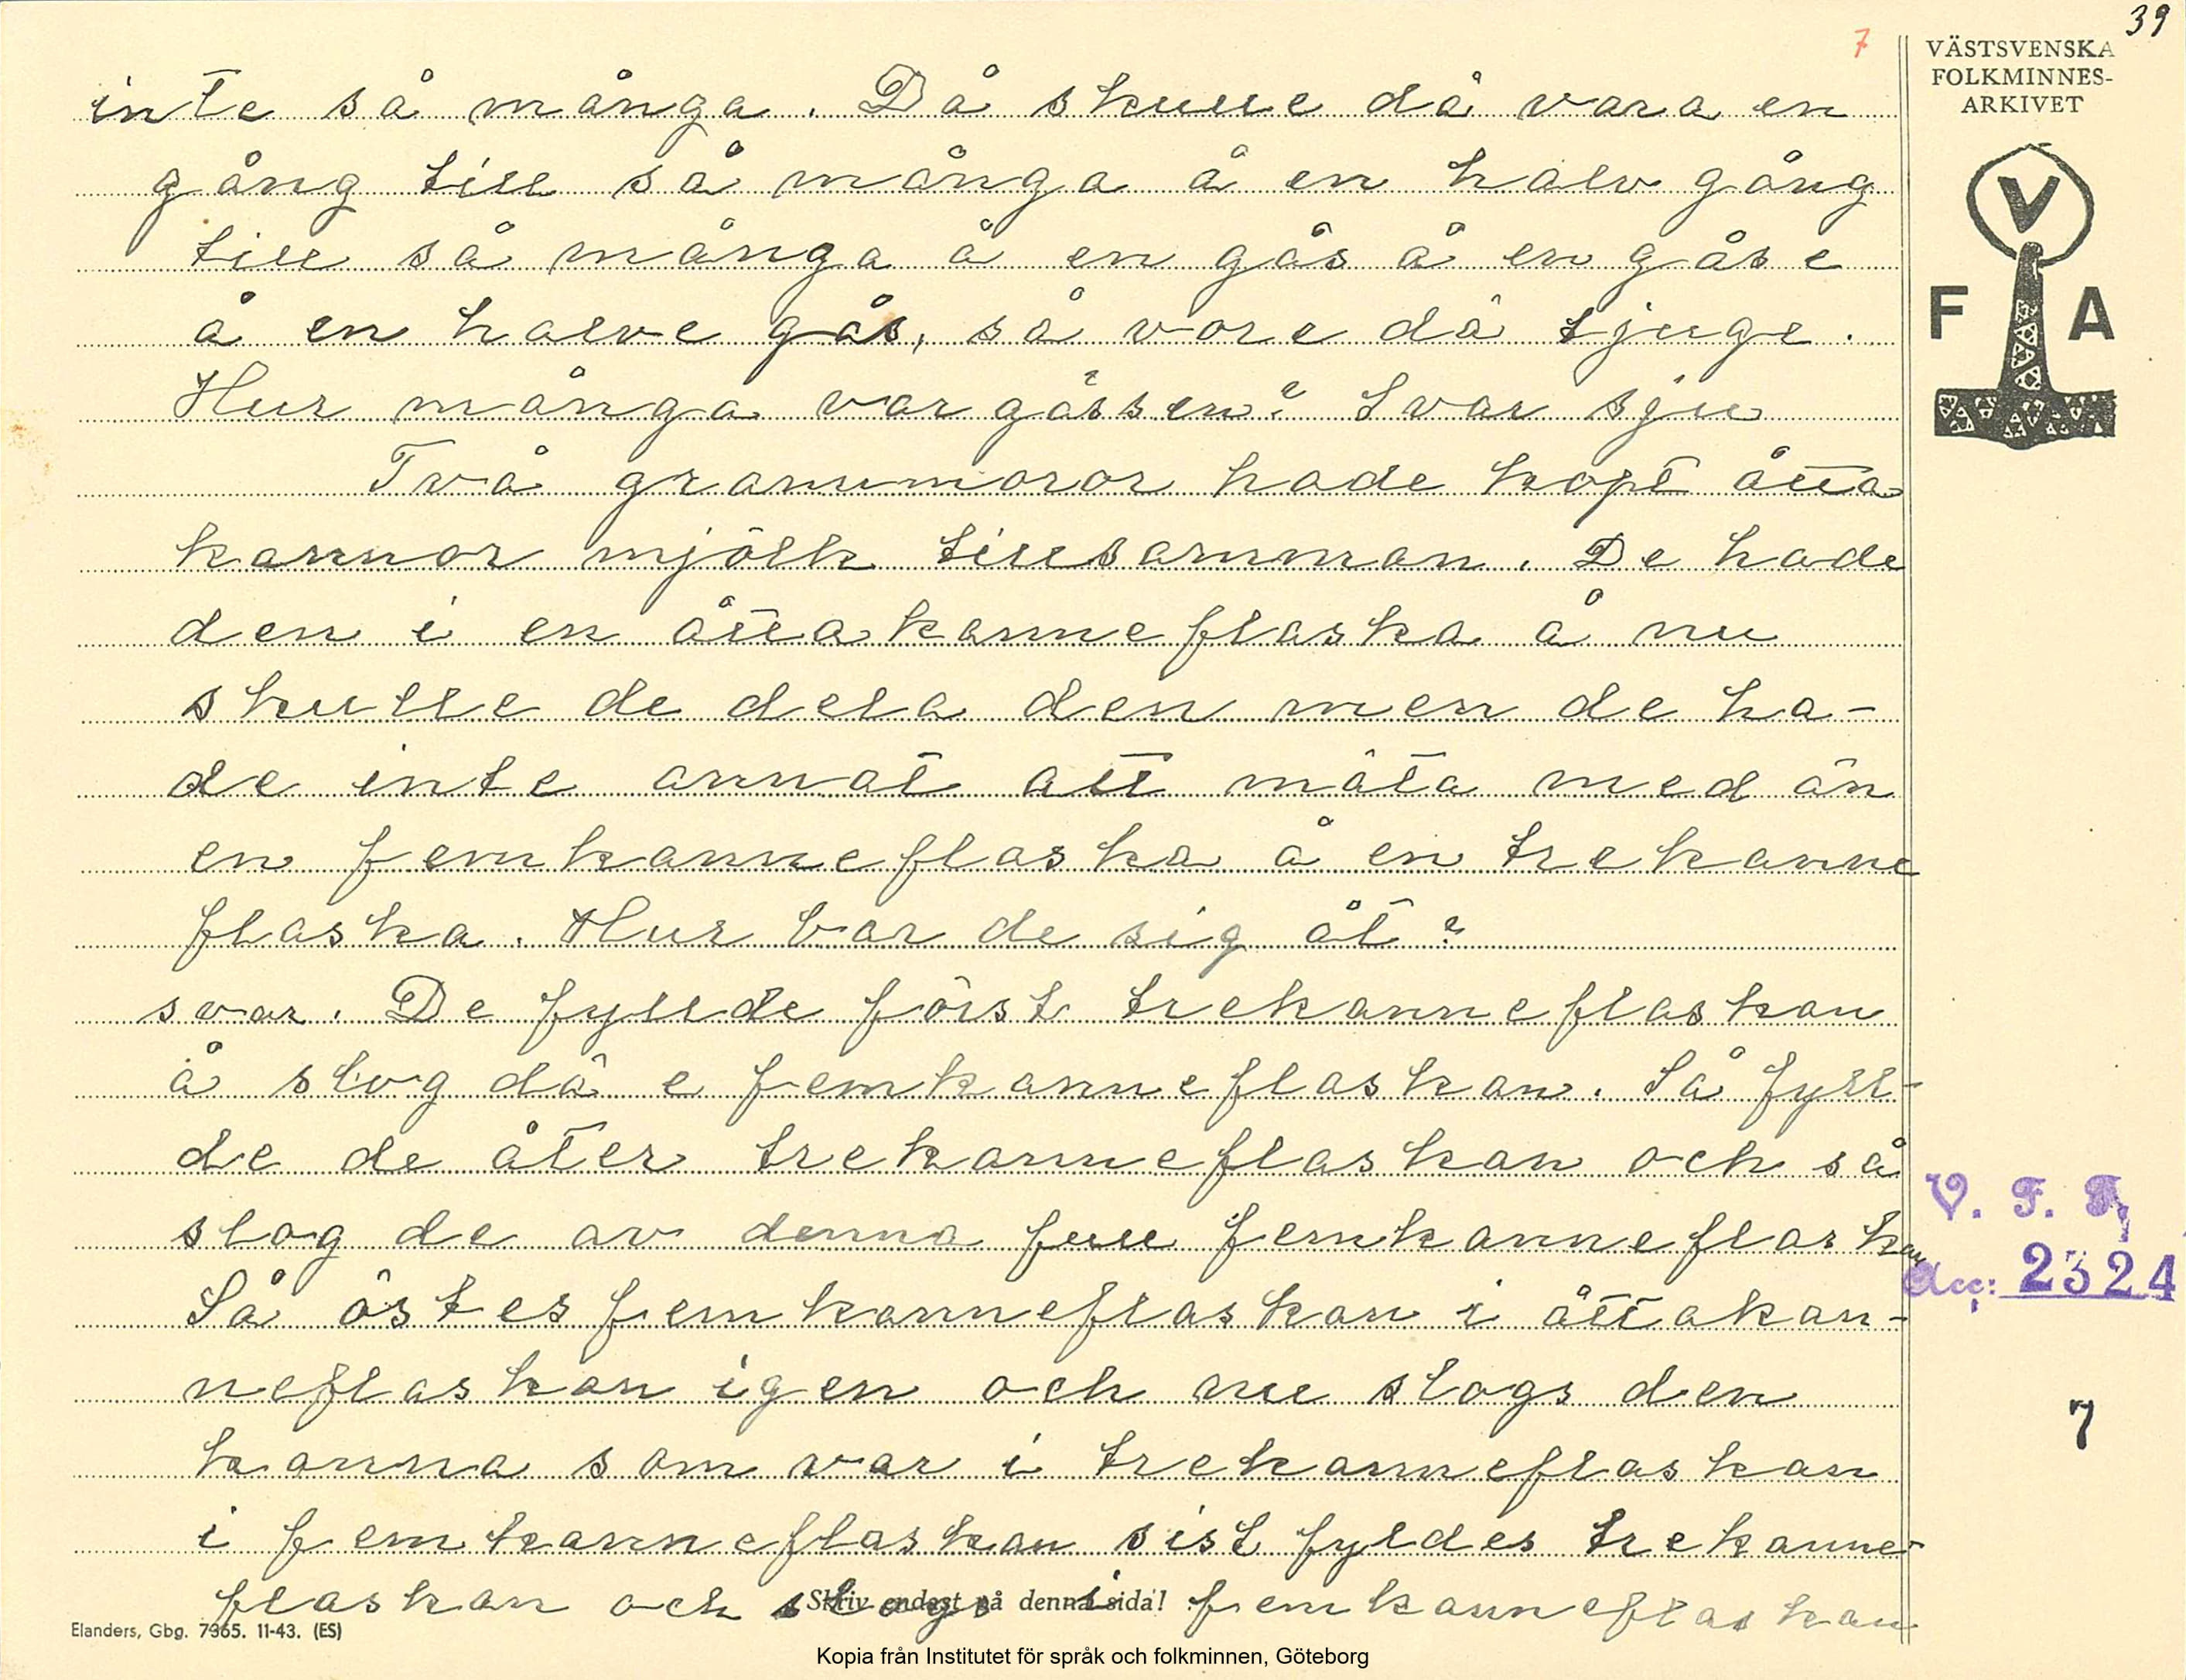 39
7
VÄSTSVENSKA
FOLKMINNES-
ARKIVET
V
F A
inte så många. Då skulle dä vara en
gång till så många å en halv gång
till så många å en gås å en gåse
å en halve gås, så vore dä tjuge.
Hur många var gässen? Svar sju
Två grannmoror hade köpt åtta
kannor mjölk tillsamman. De hade
den i en åttakanneflaska å nu
skulle de dela den men de ha-
de inte annat att mäta med än
en femkanneflaska å en trekanne
flaska. Hur bar de sig åt?
svar. De fyllde först trekanneflaskan
å slog dä e femkanneflaskan. Så fyll-
de de åter trekanneflaskan och så
slog de av denna full femkanneflaskan
Så östes femkanneflaskan i åttakan-
neflaskan igen och nu slogs den
kanna som var i trekanneflaskan
i femkanneflaskan sist fyldes trekanne-
flaskan och slogs i femkanneflaskan
V. F. F.
Acc: 2324
7
Skriv endast på denna sida!
Elanders, Gbg. 7965. 11-43. (ES)
Kopia från Institutet för språk och folkminnen, Göteborg